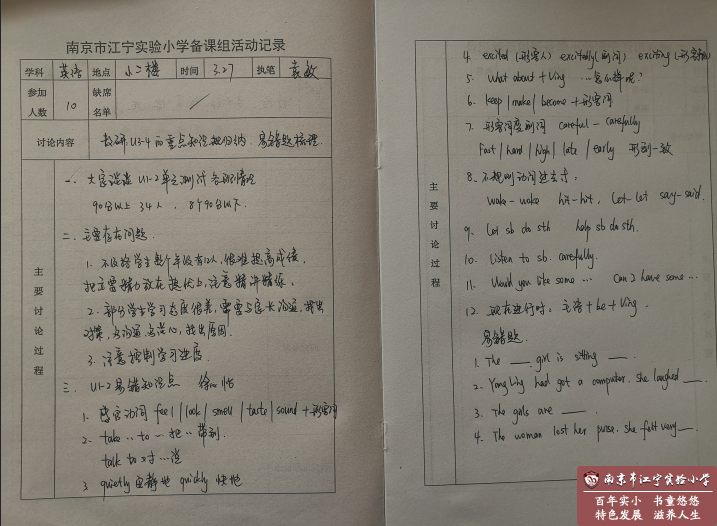 南京市江宁实验小学备课组活动记录
学科 英语 地点 小二楼 时间 3.27 执笔 袁敏
参加人数 10 缺席名单 /
讨论内容 教研U3-4的重点知识归纳、易错题梳理.
主要讨论过程
一、大家谈谈U1-2单元测试各班情况
90分以上 34人, 8个90分以下.
二、主要存在问题.
1. 不及格学生整个年级有12人, 很难提高成绩,
把主要精力放在提优上, 注意精讲精练.
2. 部分学生学习态度很差, 需要与家长沟通, 找出
对策, 多沟通, 多谈心, 找出原因.
3. 注意控制学习进度
三、U1-2易错知识点
1. 感官动词 feel | look | smell | taste | sound + 形容词
2. take … to … 把…带到
talk to 对…说
3 quietly 安静地 quickly 快地
主要讨论过程
4. excited (形容人) excitedly (副词) exciting (形容物)
5. What about + Ving …怎么样呢?
6. keep | make | become + 形容词
7. 形容词变副词 careful - carefully
fast | hard | high | late | early 形副一致
8. 不规则动词过去式:
wake - woke hit - hit, let - let say - said.
9. Let sb do sth help sb do sth.
10. Listen to sb. carefully.
11. Would you like some … Can I have some …
12. 现在进行时: 主语 + be + Ving.
易错题.
1. The ___ girl is sitting ___.
2. Yang Ling had got a computer, she laughed ___.
3. The girls are ___.
4. The woman lost her purse. she felt very ___.
南京市江宁实验小学
百年实小 书童悠悠
特色发展 滋养人生